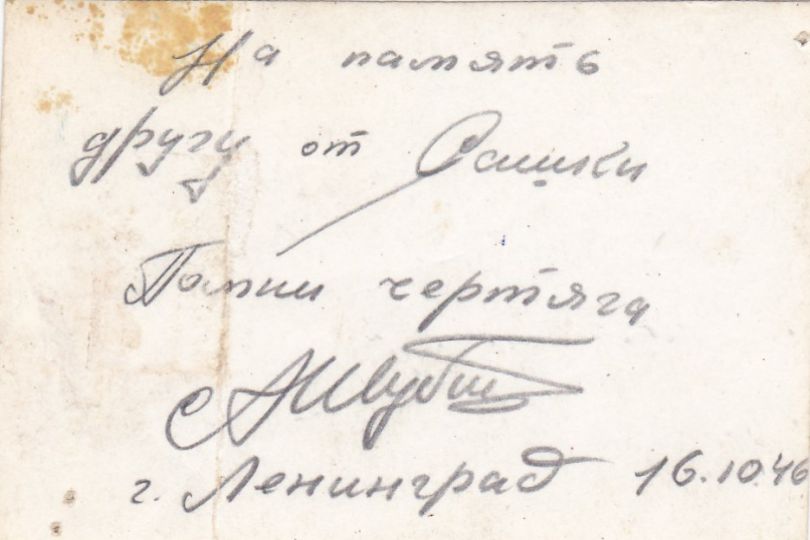 На память
другу от Сашки
Помни чертяга
г. Ленинград 16.10.46